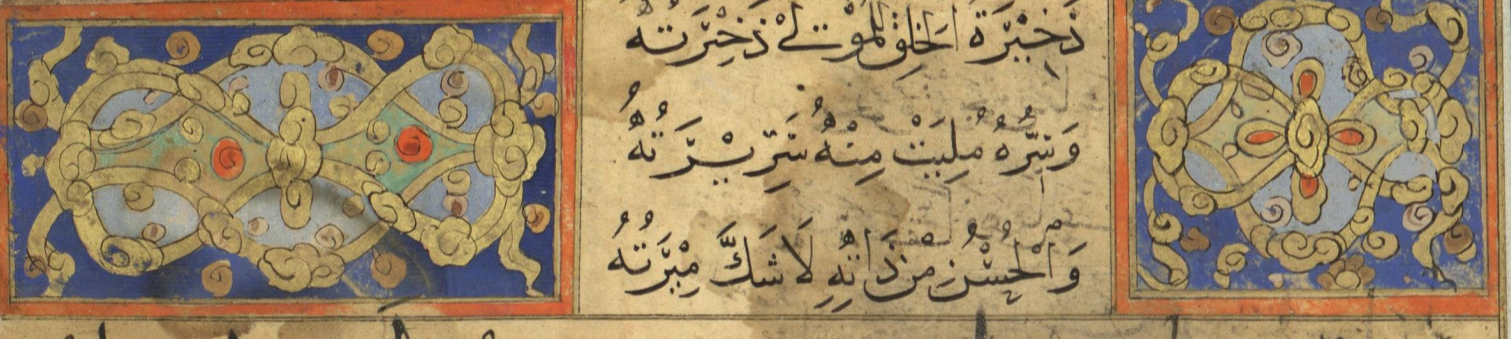 ذَخِيْرَةُ الخَلْقِ الْمَوْتِ لَيْ ذَخِيْرَتُهُ
وَسِرُّهُ مُلِيَتْ مِنْهُ سَرِيْرَتُهُ
وَالْحُسْنُ مِنْ ذَاتِهِ لَاشَكَّ مِبَرَّتُهُ